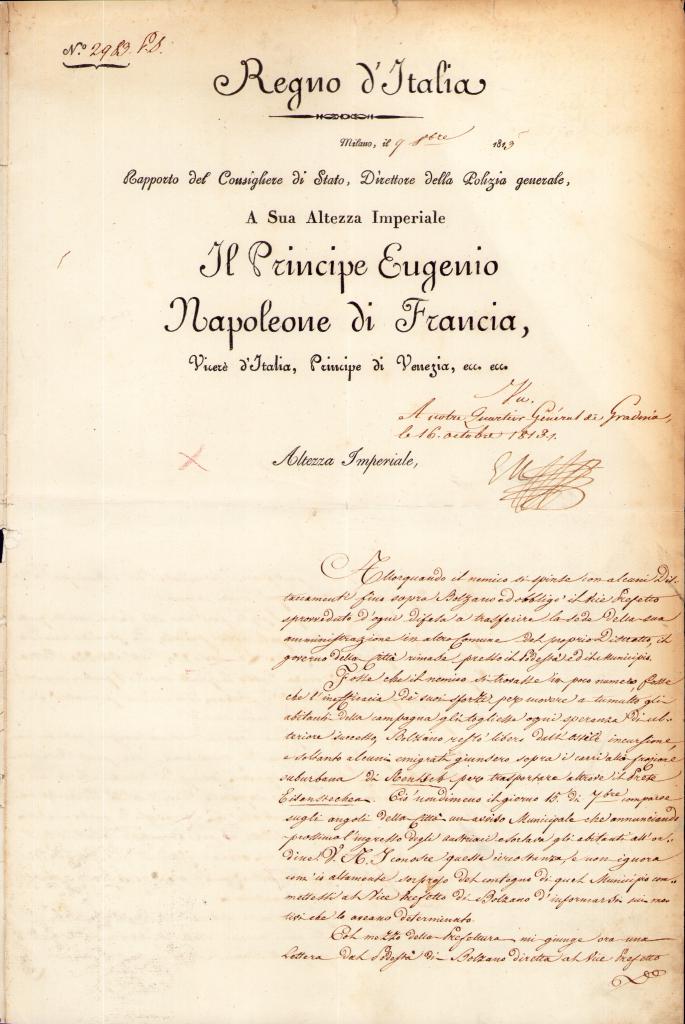 N.º 2983. P.S.
Regno d'Italia
Milano, il 9 8bre 1813
Rapporto del Consigliere di Stato, Direttore della Polizia generale,
A Sua Altezza Imperiale
Il Principe Eugenio
Napoleone di Francia,
Vicerè d'Italia, Principe di Venezia, ecc. ecc.
Vu.
A notre Quartier Général de Gradisca,
le 16. octobre 1813.
Altezza Imperiale,
Allorquando il nemico si spinse con alcuni Dis-
taccamenti fino sopra Bolzano ed obbligò il Vice Prefetto
sprovveduto d'ogni difesa a trasferire la sede della sua
amministrazione in altro Comune del proprio Distretto, il
governo della Città rimase presso il Podestà ed il Municipio.
Fosse che il nemico si trovasse in poco numero, fosse
che l'inefficacia de' suoi sforzi per muovere a tumulto gli
abitanti della campagna gli togliesse ogni speranza di ul-
teriore successo, Bolzano restò libero dall' incursione,
e soltanto alcuni emigrati giunsero sopra i carri alla frazione
suburbana di per trasportare altrove il Prete
Eisenstecken. Ciò nondimeno il giorno 15. di 7bre comparve
sugli angoli della Città un avviso Municipale che annunciando
prossimo l'ingresso degli austriaci esortava gli abitanti all'or-
dine. V. A. I. conosce questa circostanza, e non ignora
com'io altamente sorpreso del contegno di quel Municipio com-
mettessi al Vice Prefetto di Bolzano d'informarsi sui mo-
tivi che lo aveano determinato.
Col mezzo della Prefettura mi giunge ora una
lettera del Podestà di Bolzano diretta al Vice Prefetto